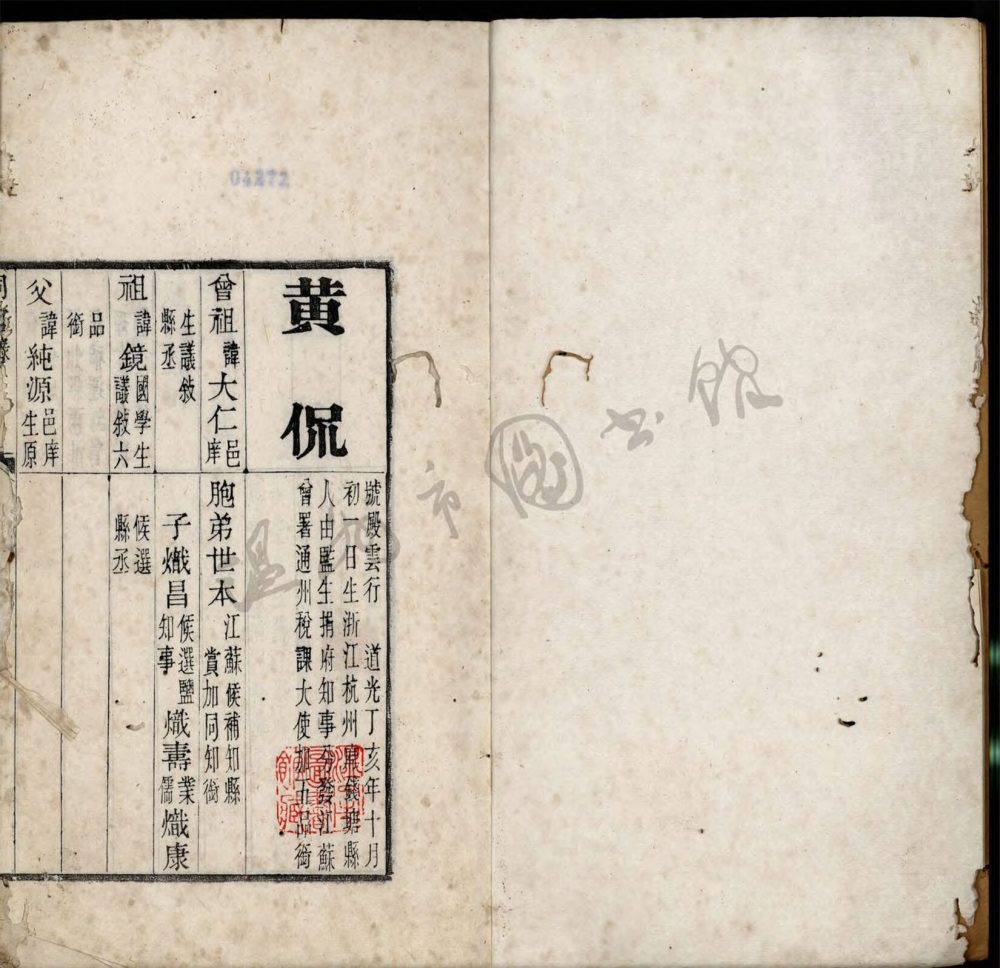 04272
黄侃
號殿雲行 道光丁亥年十月
初一日生浙江杭州府錢塘縣
人由監生捐府知事分發江蘇
曾署通州稅課大使加五品銜
曾祖諱大仁邑庠
生議敘
縣丞
祖諱鏡國學生
議敘六
品
銜
父諱純源邑庠
生原
胞弟世本江蘇候補知縣
賞加同知銜
子熾昌候選鹽
知事
熾壽業
儒
熾康
候選
縣丞
溫州市圖書館